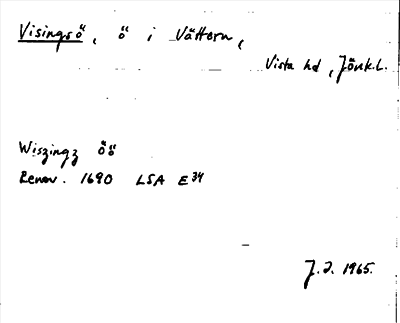 Visingsö, ö i Vättern,
Vista hd, Jönk.L.
Wiszingz öö
Renov. 1690 LSA E34
J.I. 1965.